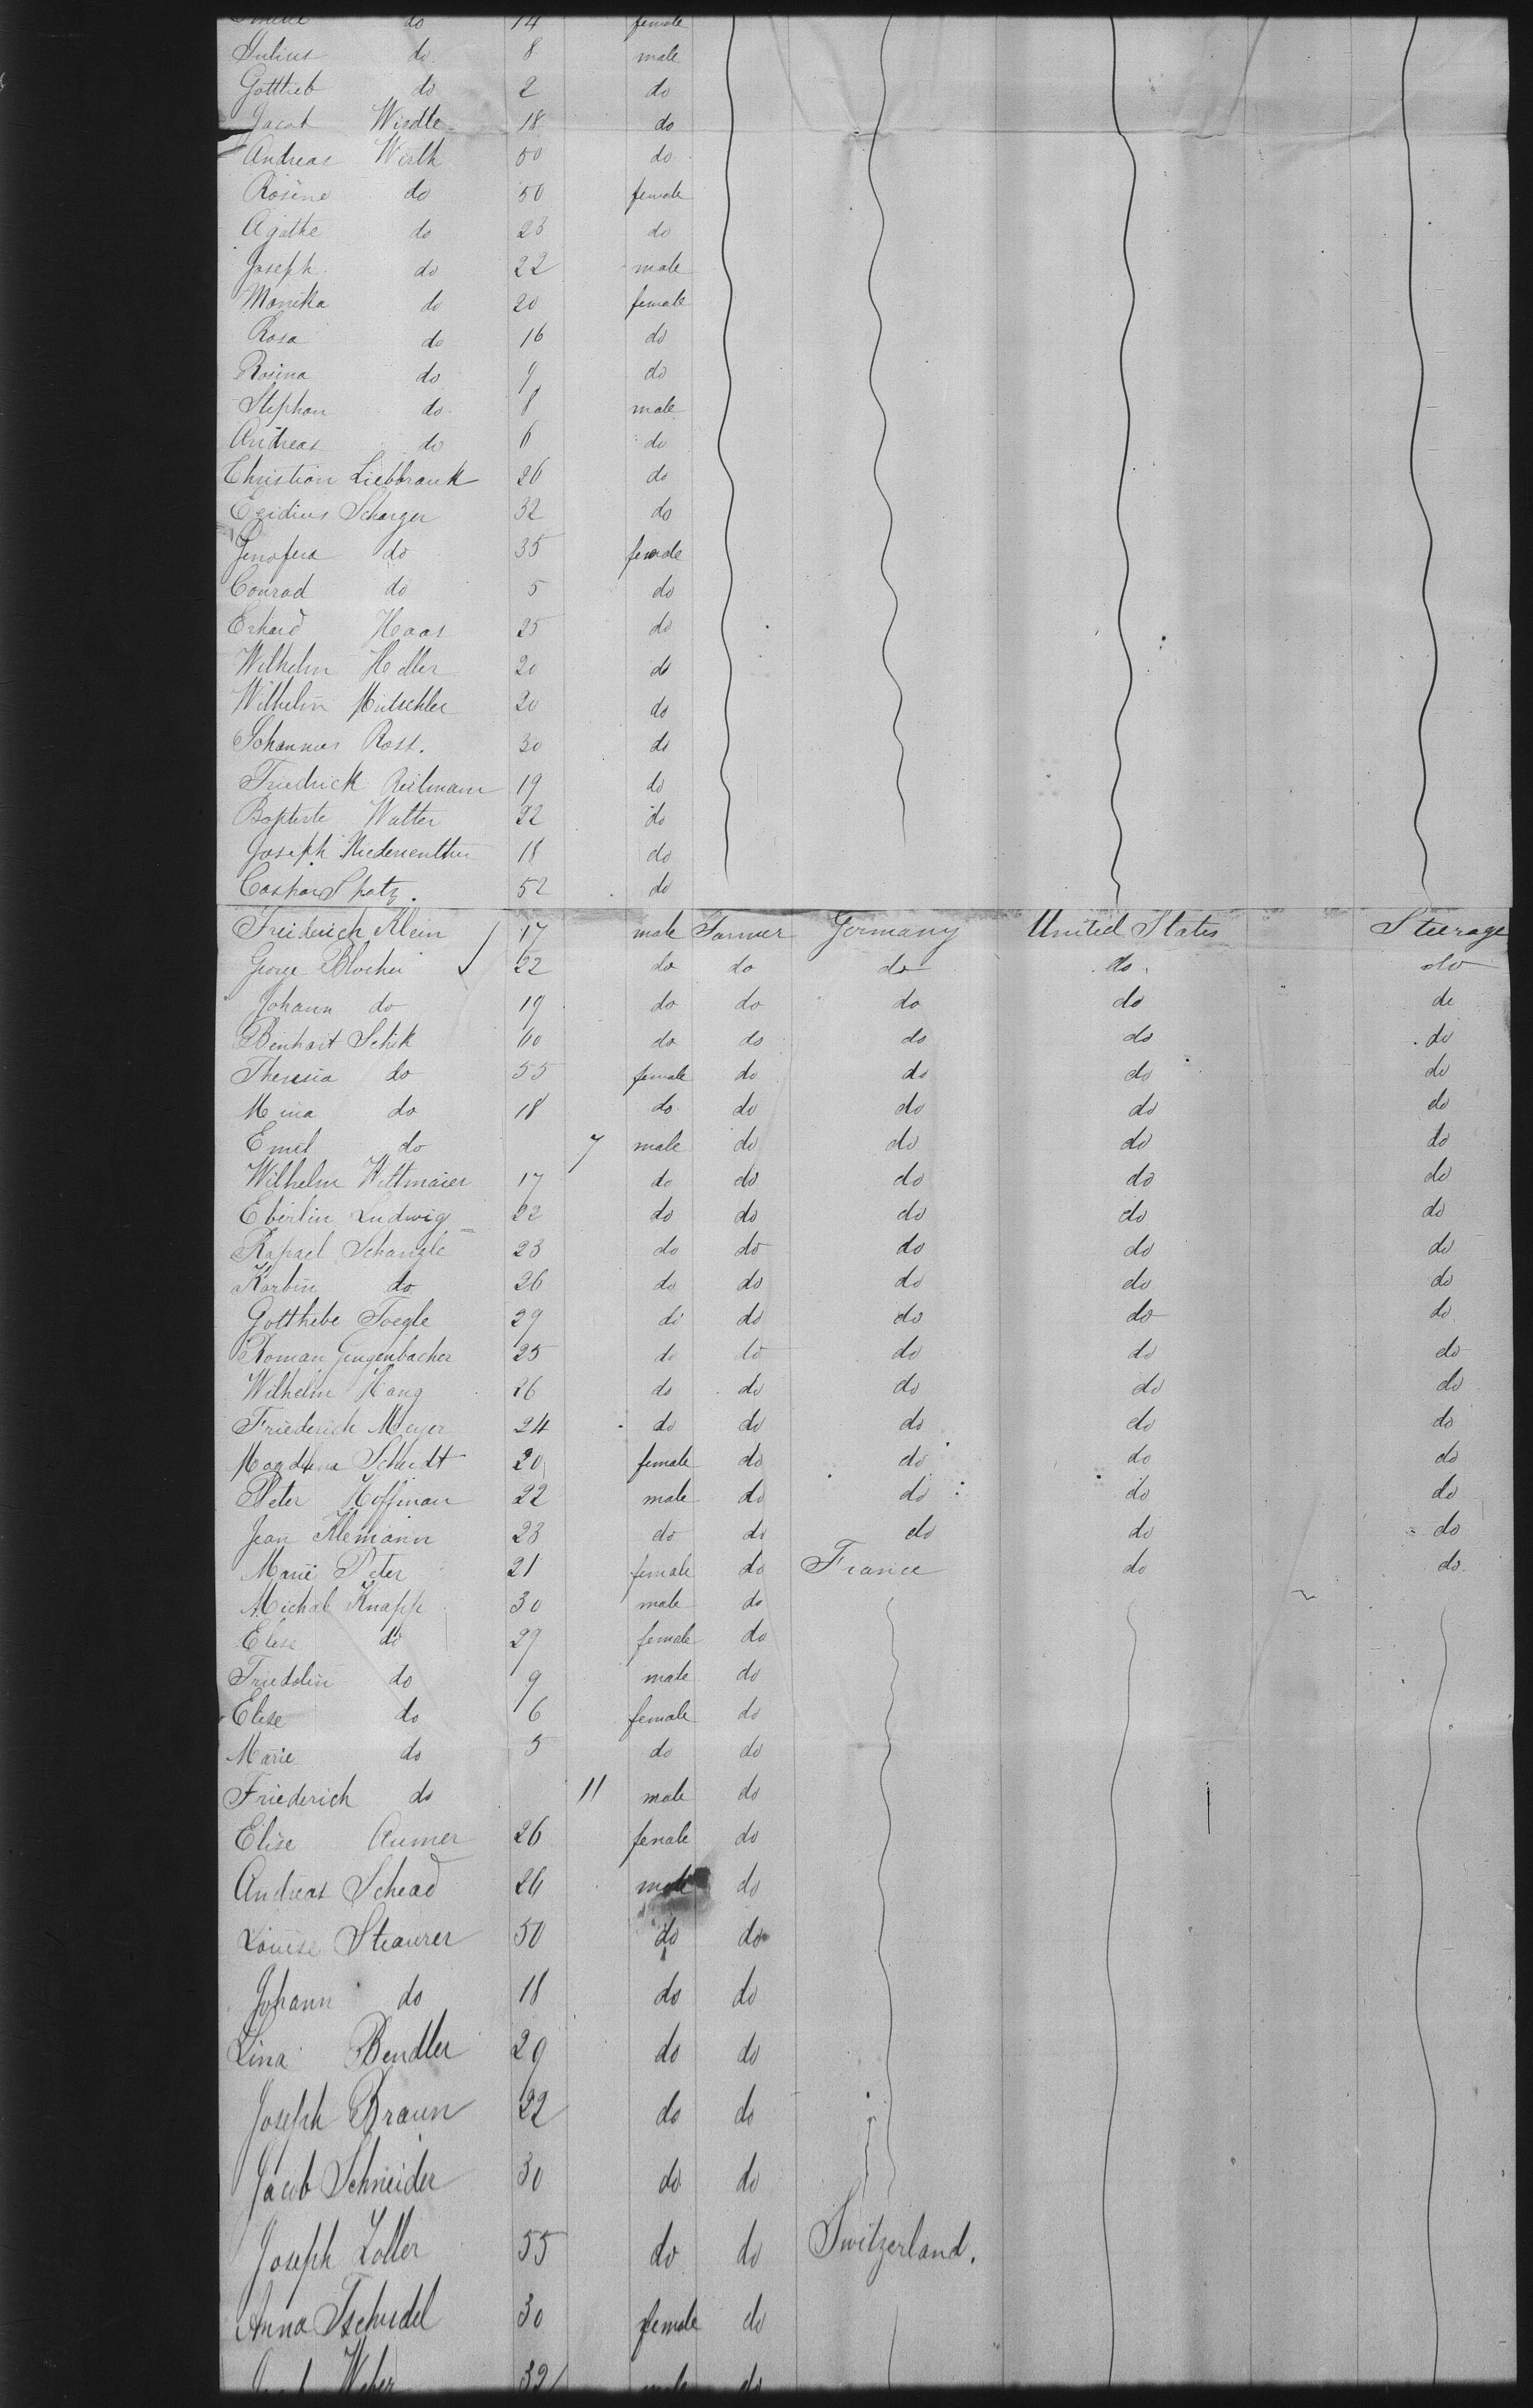 do 14 female
Julius do 8 male
Gottlieb do 2 do
Jacob Wirdle 18 do
Andreas Wirth 50 do
Rosine do 50 female
Agathe do 23 do
Joseph do 22 male
Monika do 20 female
Rosa do 16 do
Rosina do 9 do
Stephan do 8 male
Andreas do 6 do
Christian Liebbrank 26 do
Egidius Scharger 32 do
Genofera do 35 female
Conrad do 5 do
Erhard Haas 25 do
Wilhelm Heller 20 do
Wilhelm Mutschler 20 do
Johannes Rost. 30 do
Friedrick Reilmann 19 do
Baptiste Walter 22 do
Joseph 18 do
Caspar Spatz. 52 do
Friederich Klein 17 male Farmer Germany United States Steerage
George Blocher 22 do do do do do
Johann do 19 do do do do do
Benhart Schik 60 do do do do do
Theresia do 55 female do do do do
Mina do 18 do do do do do
Emil do 7 male do do do do
Wilhelm Wittmaier 17 do do do do do
Eberlin Ludwig 22 do do do do do
Rapael Schangle 23 do do do do do
Korbin do 26 do do do do do
Gotthebe Toegle 29 do do do do do
Roman Gengenbacher 25 do do do do do
Wilhelm Haug 26 do do do do do
Friederich Meyer 24 do do do do do
Magdlena Scheidt 20 female do do do do
Peter Hoffman 22 male do do do do
Jean Klemann 23 do do do do do
Marie Peter 21 female do France do do
Michal Knapp 30 male do
Elise do 29 female do
Friedolin do 9 male do
Elise do 6 female do
Marie do 5 do do
Friederich do 11 male do
Elise Aumer 26 female do
Andreas Schead 26 male do
Louise Straurer 50 do do
Johann do 18 do do
Lina Bendler 29 do do
Joseph Braun 22 do do
Jacob Schneider 30 do do
Joseph Zoller 55 do do Switzerland.
Anna Tschudel 30 female do
Weber 32 male do